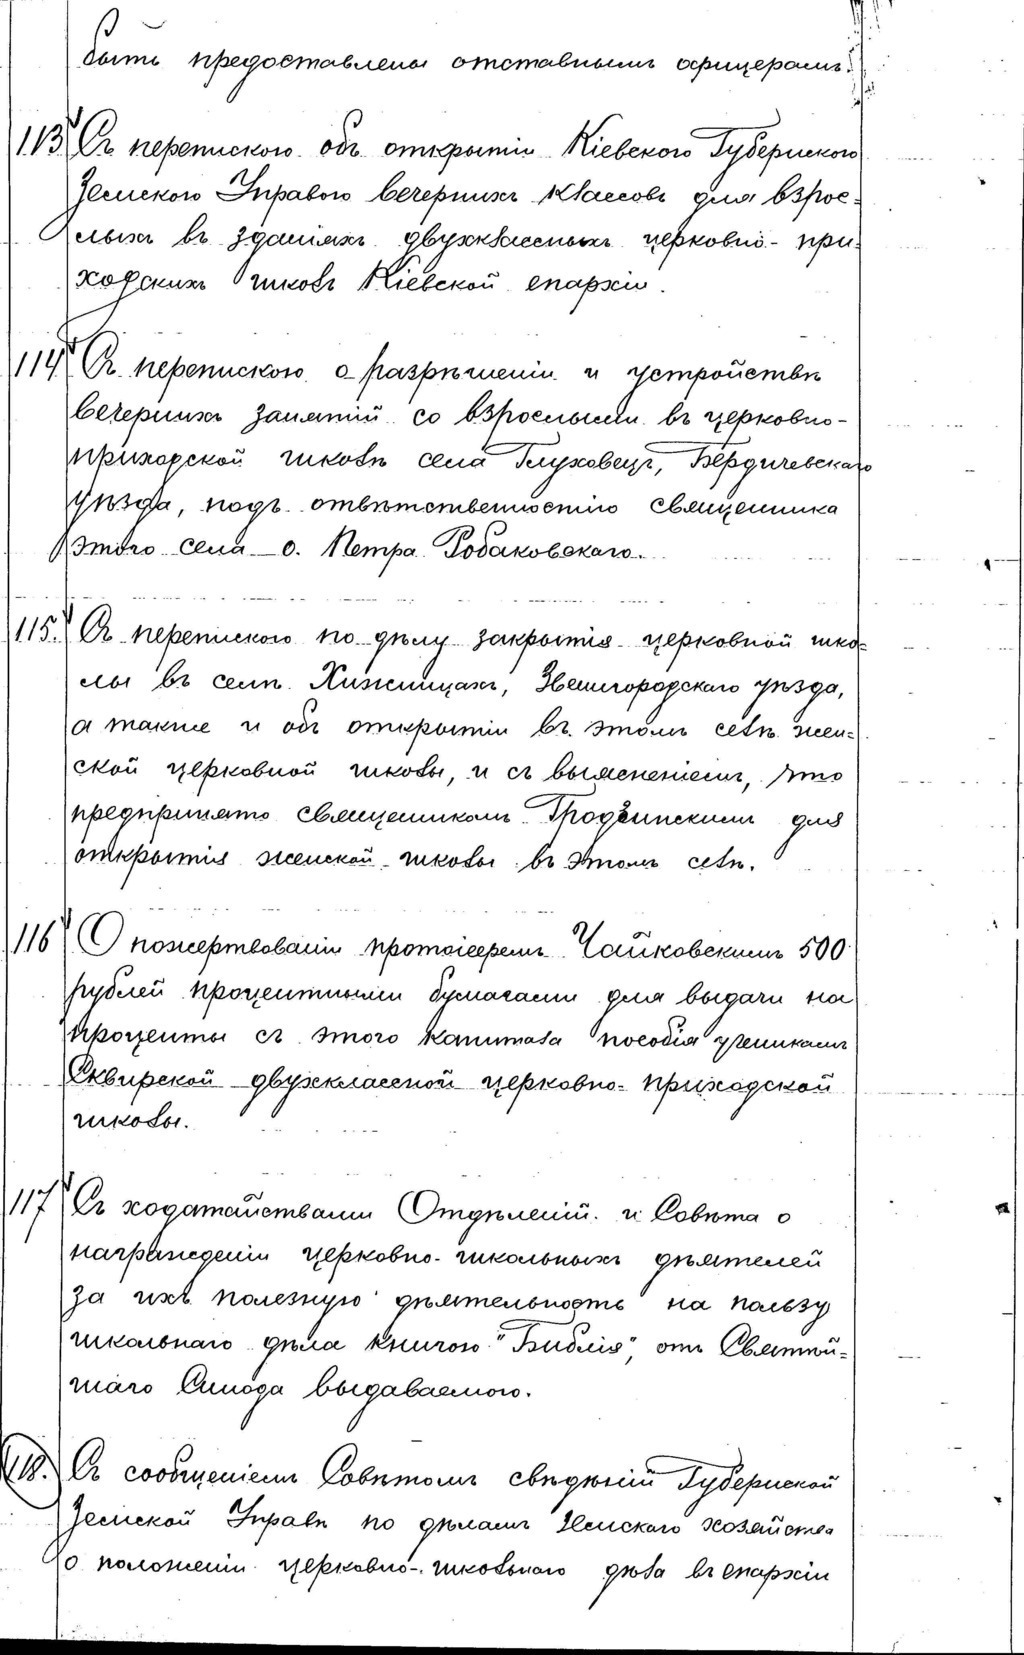 быть предоставлены отставнымъ офицерамъ.
113. Съ перепискою объ открытіи Кіевскою Губернскою
Земскою Управою вечернихъ классовъ для взрос-
лыхъ въ зданіяхъ двухклассныхъ церковно-при-
ходскихъ школъ Кіевской епархіи.
114 Съ перепискою о разрѣшеніи и устройствѣ
вечернихъ занятій со взрослыми въ церковно-
приходской школѣ села Глуховецъ, Бердичевскаго
уѣзда, подъ отвѣтственностію священника
этого села о. Петра Робаковскаго.
115. Съ перепискою по дѣлу закрытія церковной шко-
лы въ селѣ Хижинцахъ, Звенигородскаго уѣзда,
а также и объ открытіи въ этомъ селѣ жен-
ской церковной школы, и съ выясненіемъ, что
предпринято священникомъ Гродзинскимъ для
открытія женской школы въ этомъ селѣ.
116 О пожертвованіи протоіереемъ Чайковскимъ 500
рублей процентными бумагами для выдачи на
проценты съ этого капитала пособія ученикамъ
Сквирской двухклассной церковно-приходской
школы.
117 Съ ходатайствами Отдѣленій и Совѣта о
награжденіи церковно-школьныхъ дѣятелей
за ихъ полезную дѣятельность на пользу
школьнаго дѣла книгою "Библія", отъ Святѣй-
шаго Синода выдаваемою.
118. Съ сообщеніемъ Совѣтомъ свѣдѣній Губернской
Земской Управѣ по дѣламъ Земскаго хозяйства
о положеніи церковно-школьнаго дѣла въ епархіи